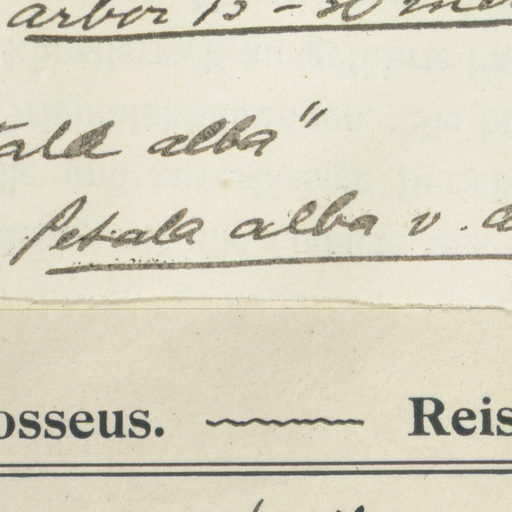 arbor 15-30
alba"
Petala alba v.
osseus. Reis